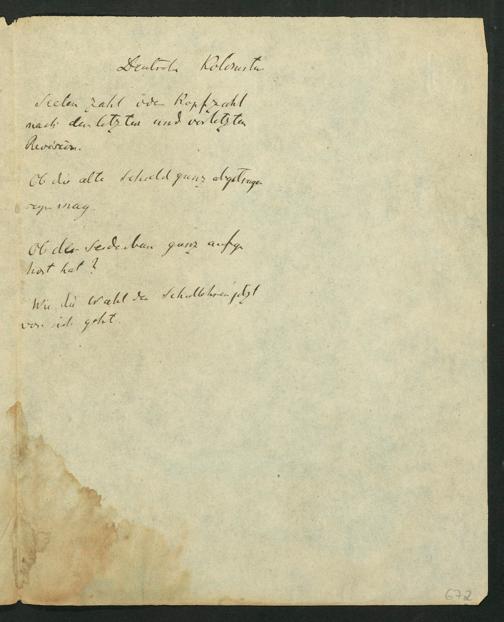 Deutsche Kolonisten
Seelen zahl oder Kopfzahl
nach der letzten und vorletzten
Revision.
Ob die alte Schuld ganz abgetragen
seyn mag.
Ob der Seidenbau ganz aufge
hört hat?
Wie die Wahl der Schullehrer jetzt
vor sich geht.
672